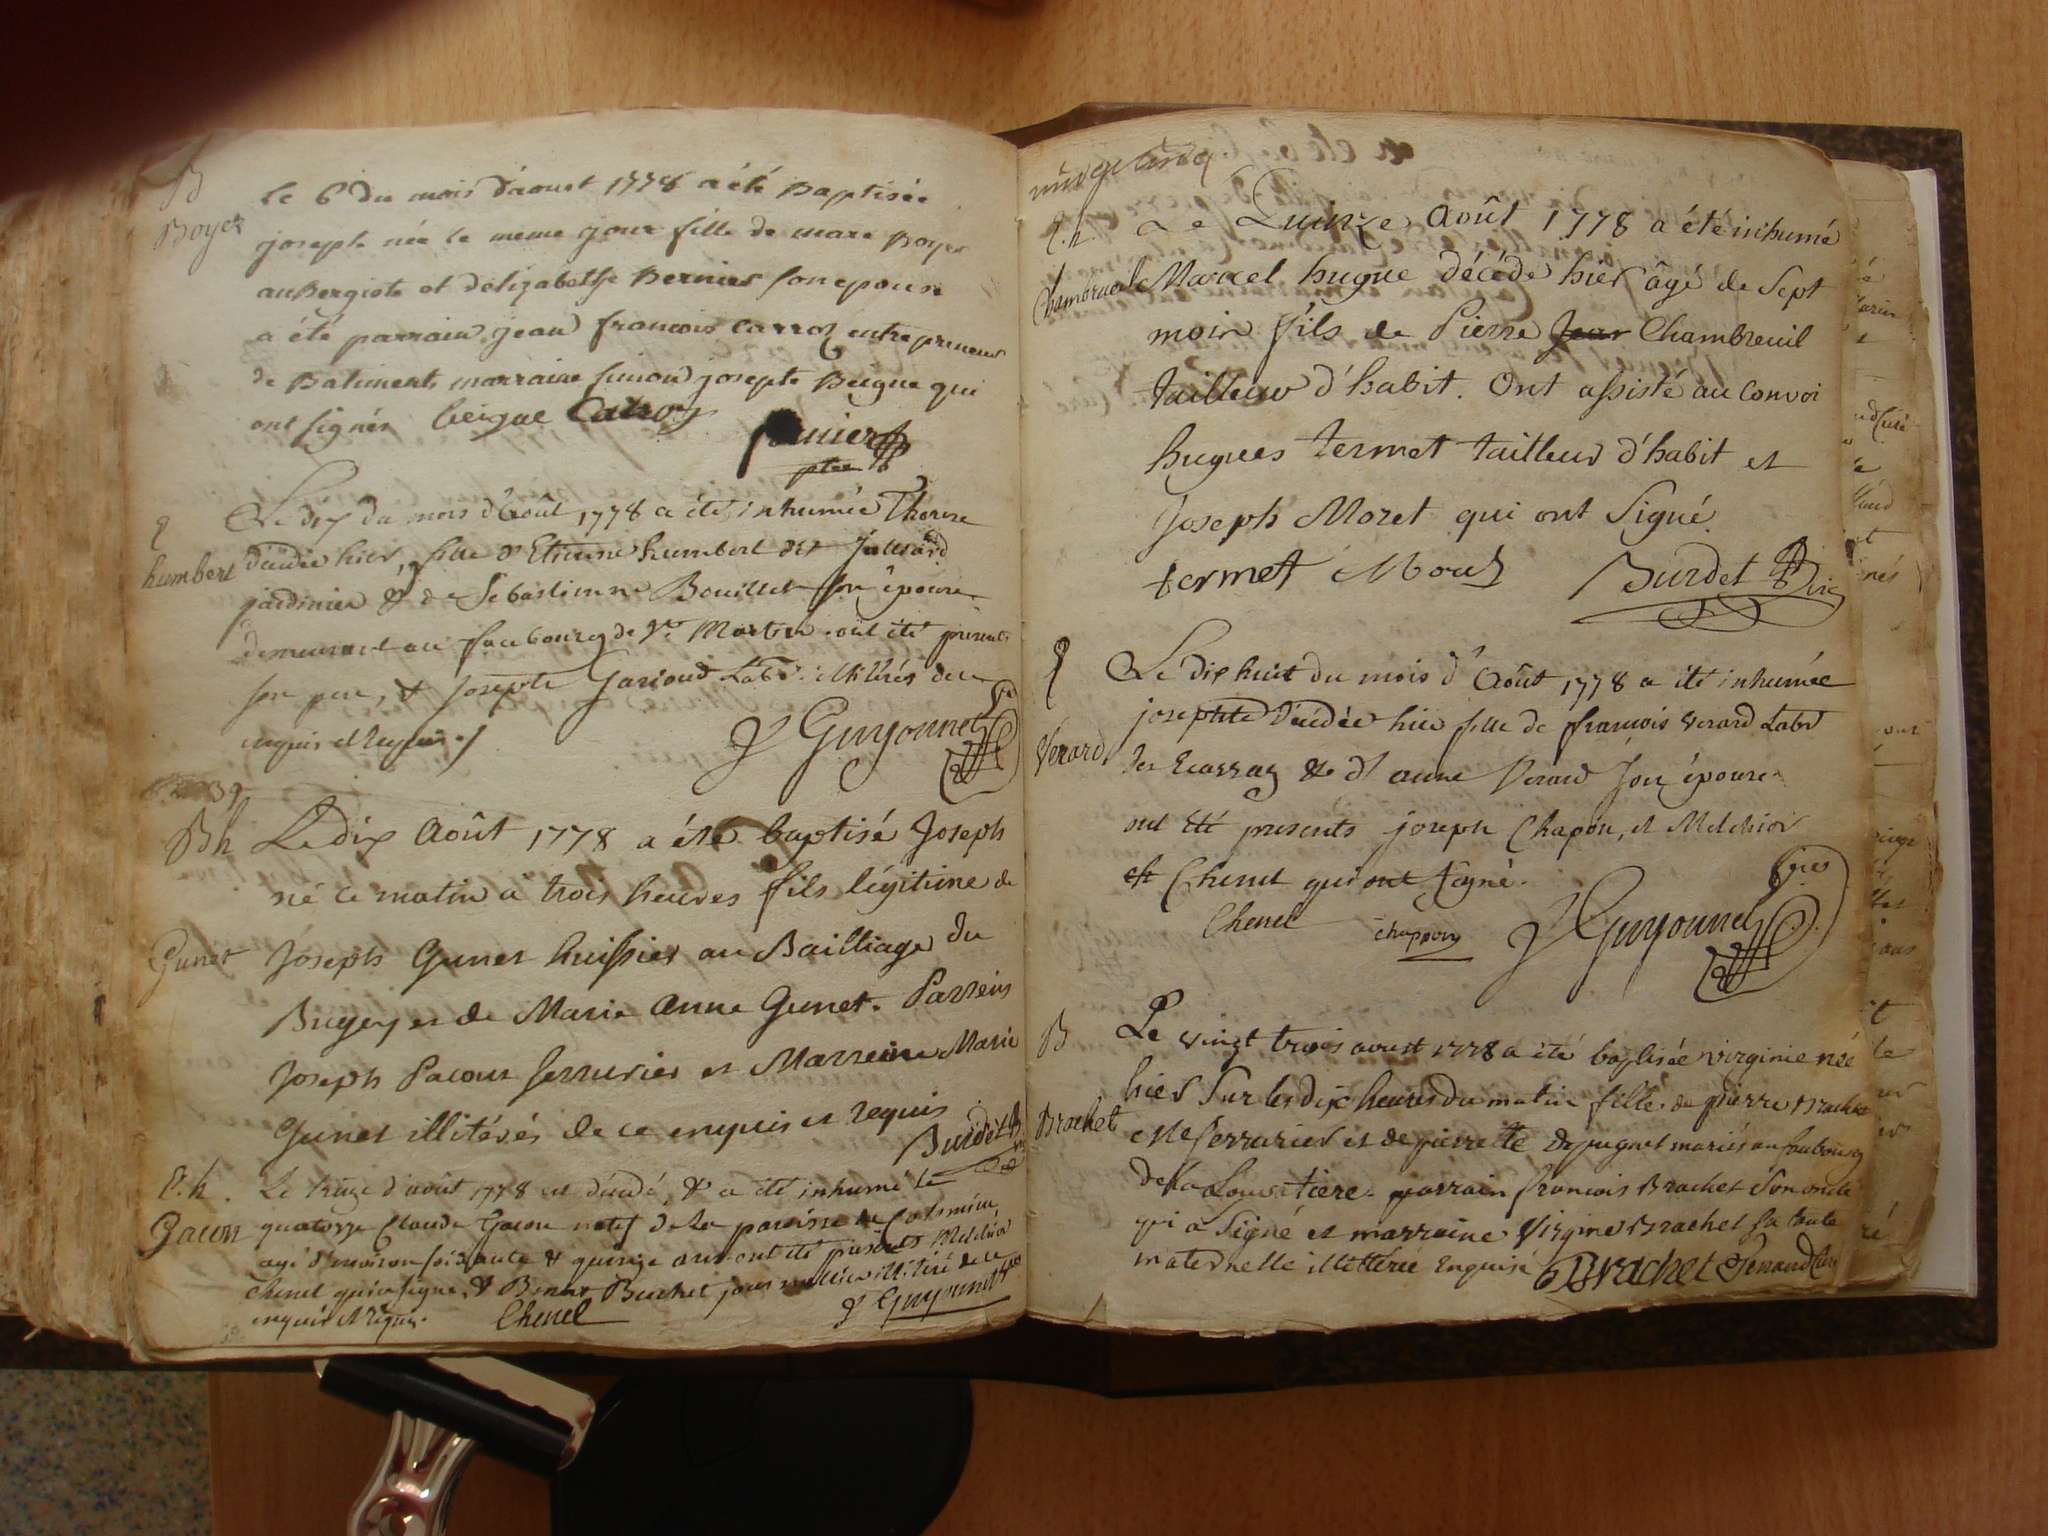 B
Boyer
le 6 du mois d'aoust 1778 a été Baptisée
josephe née le meme jour fille de marc Boyer
auBergiste et d'elizabethe Bernier son epouse
a été parrain jean francois Carroz entrepreneur
de Batiments marraine simon josepte Beigne qui
ont signés beigne
ptre
humbert
Le dix du mois d'Août 1778 a été inhumée Therese
décédée hier, fille d'Etienne humbert dit
jardinier & de Sebastienne Bouillet son épouse
demeurant au faubourg de St Martin ont été présents
son pere, & Joseph Garioud Labr illitérés de ce
enquis et requis
J Guyonnet
39
Bh
Gunet
Le dix Août 1778 a été baptisé Joseph
né ce matin à trois heures fils légitime de
Joseph Gunet huissier au Bailliage du
Bugey et de Marie Anne Gunet. Parrein
Joseph Pacout serrurier et Marreine Marie
Gunet illitérés de ce enquis et requis
Burdet
P.h.
Gacon
Le treize d'août 1778 est décédé, & a été inhumé le
quatorze Claude Gacon natif de la paroisse de
agé d'environ soixante & quinze ans ont été présents Melchior
Chenel qui a signé, & Buchet illitéré de ce
enquis et requis. Chenel J Guyonnet
P.h.
Chambreuil
Le Quinze Août 1778 a été inhumé
Marcel hugue décédé hier âgé de Sept
mois fils de Pierre Jean Chambreuil
tailleur d'habit. Ont assisté au Convoi
hugues termet tailleur d'habit et
Joseph Moret qui ont Signé
termet Burdet Vic
Verard
Le dix huit du mois d'Août 1778 a été inhumée
josephte décédée hier fille de francois verard Labr
des Ecassaz & d'anne Verard son épouse
ont été presents joseph Chapon, et Melchior
et Chenel qui ont signé.
Chenel chappon J Guyonnet
B
Brachet
Le vingt trois aoust 1778 a été baptisée virginie née
hier sur les dix heures du matin fille de pierre Brachet
me serrurier et de pierrette Dupugnet mariés au faubourg
de la Louvatiere. parrain francois Brachet son oncle
qui a signé et marraine Virginie Brachet sa tante
maternelle illettérée Enquise Brachet Genand Curé